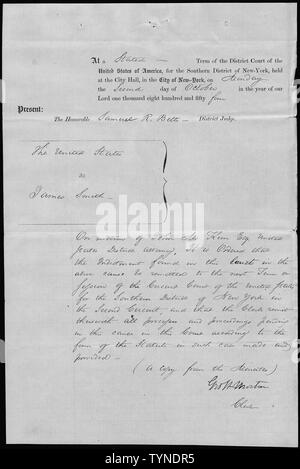 At a Stated Term of the District Court of the
United States of America, for the Southern District of New-York, held
at the City Hall, in the City of New-York, on
the Second day of October in the year of our
Lord one thousand eight hundred and fifty
Present:
The Honorable Samuel R. Betts District Judge.
The United States
vs
James Smith
On motion of John Mc Keon Esq United
States District Attorney, It is Ordered that
the Indictment found in this Court in the
above cause be remitted to the next Term or
Session of the Circuit Court of the United States
for the Southern District of New York in
the Second Circuit, and that the Clerk remit
therewith all processes and proceedings
in the cause in this Court according to the
form of the Statute in such case made and
provided
(A copy from the Minutes)
Geo W Morton
Clerk
alamy
TYNDR5